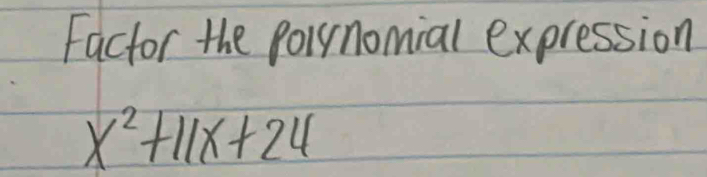 Factor the polynomial expression
x²+11x+24